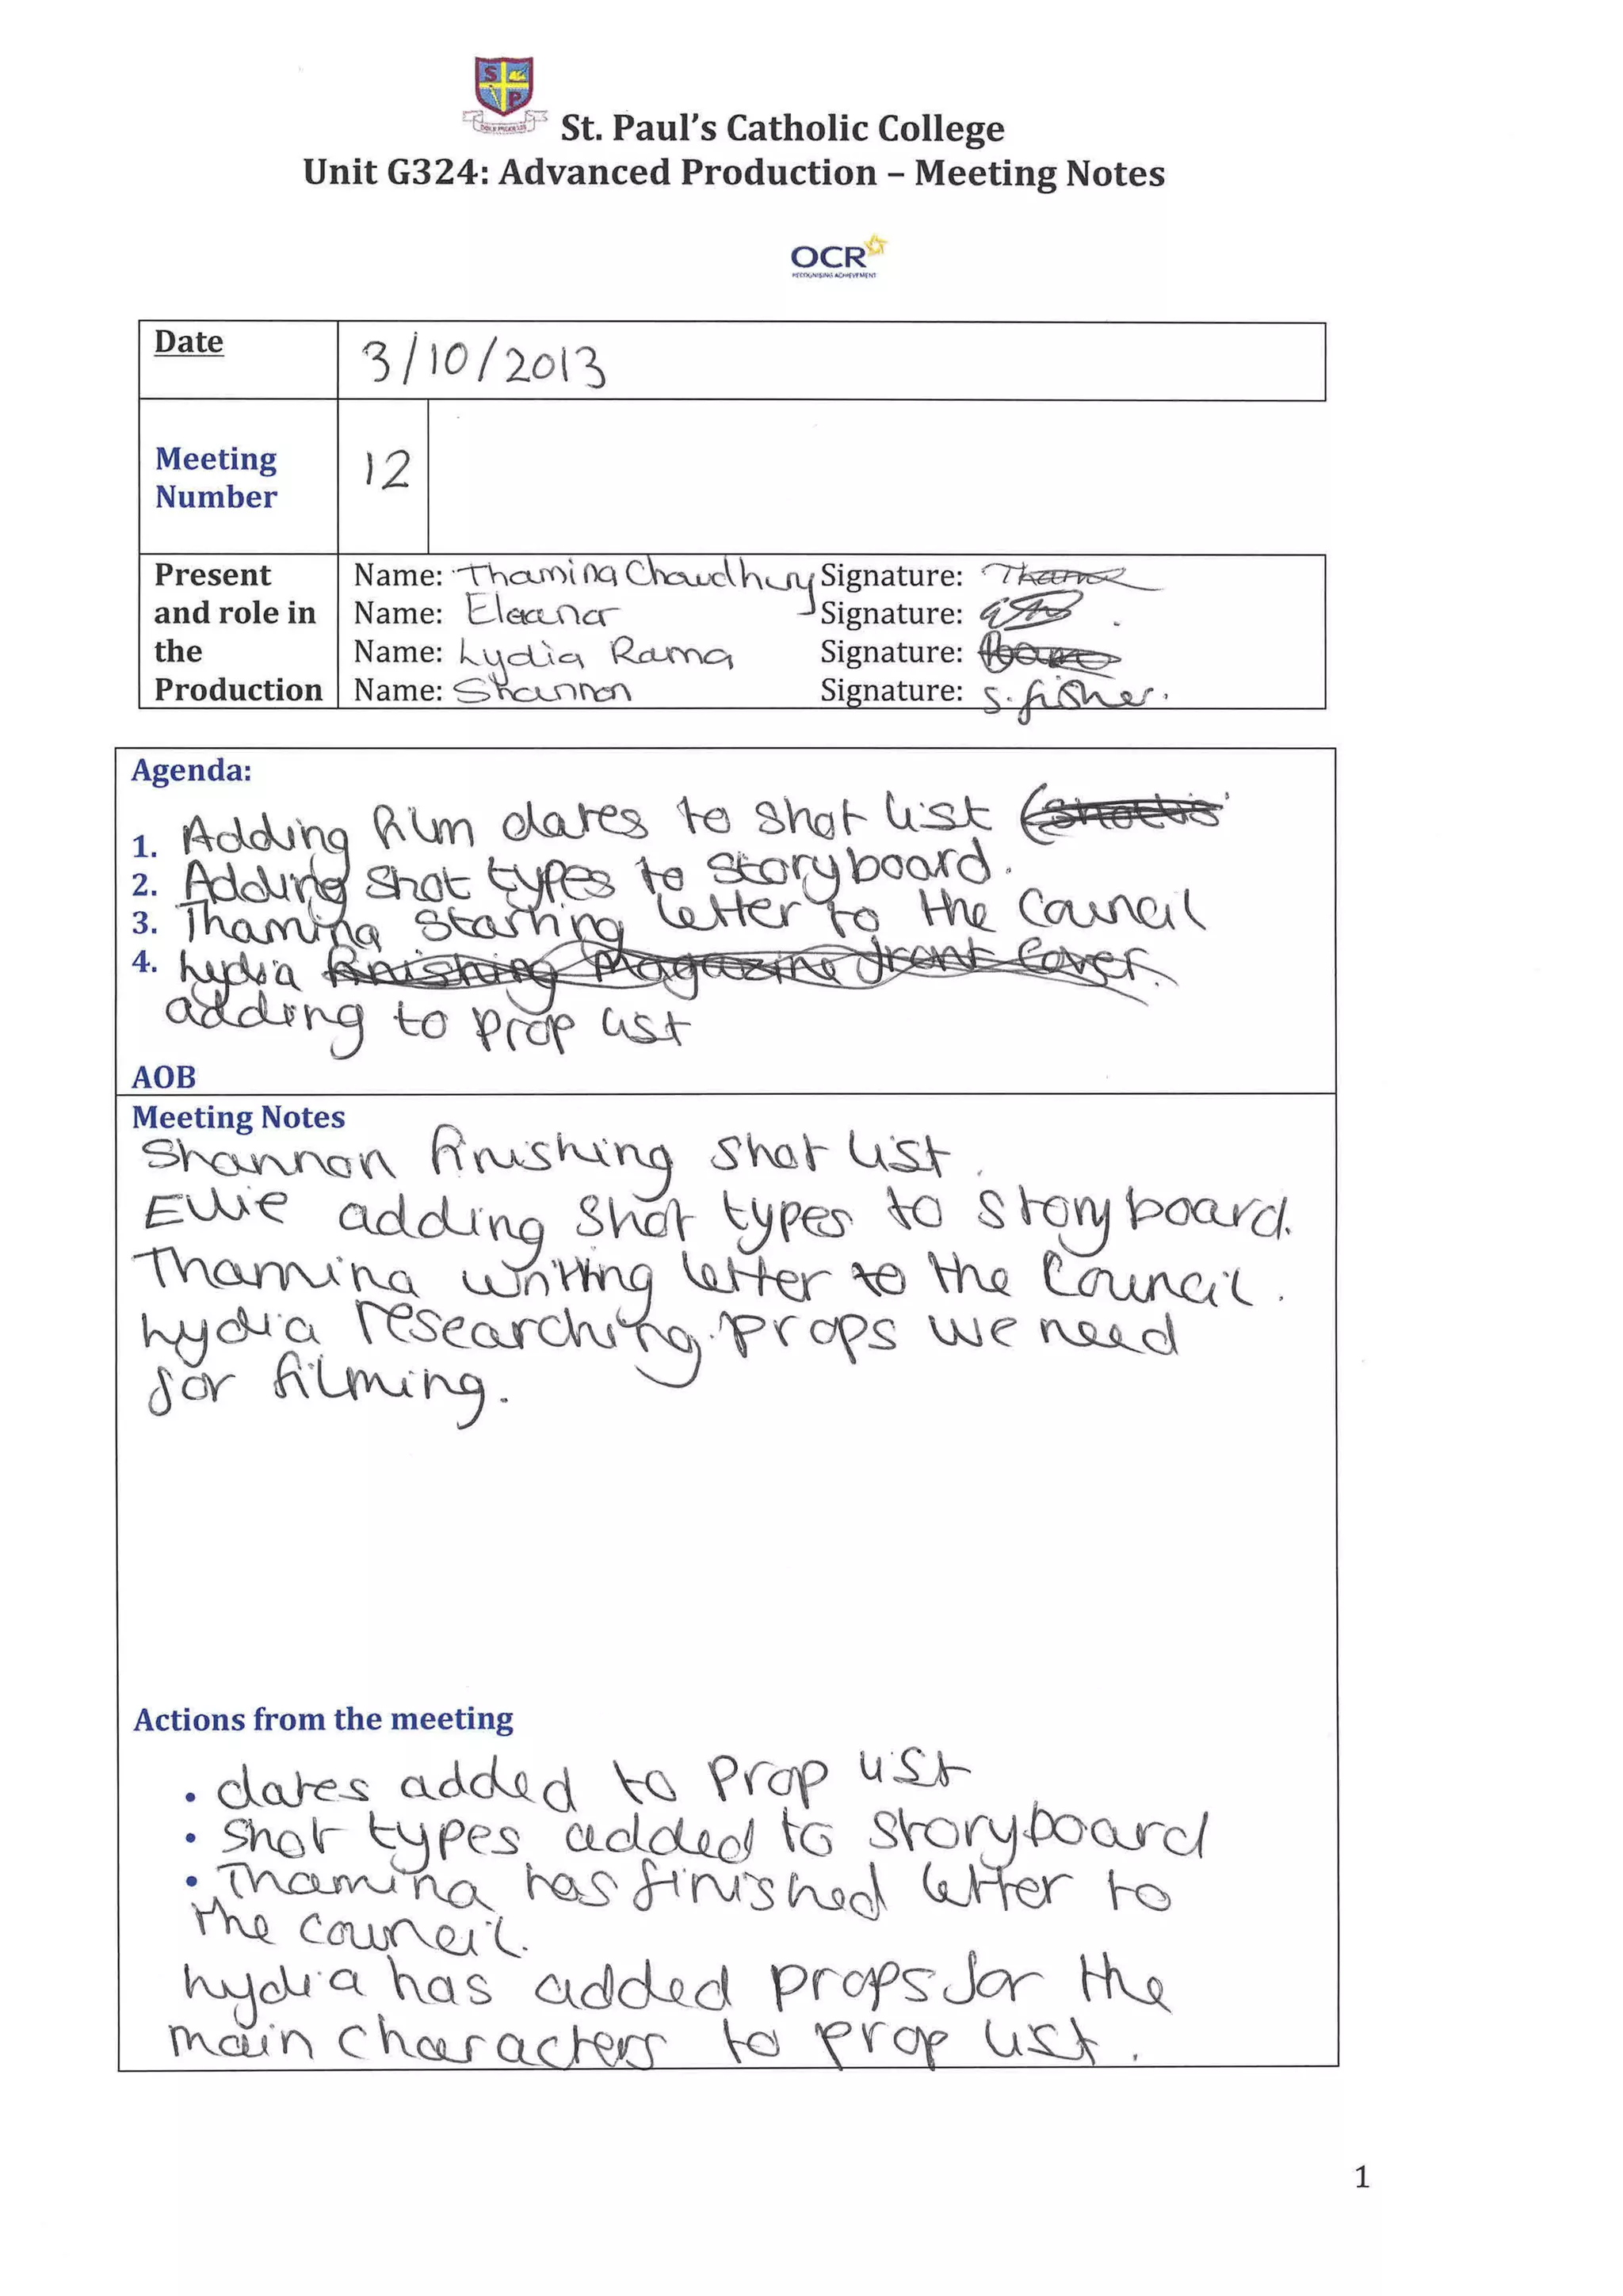 St. Paul's Catholic College
Unit G324: Advanced Production – Meeting Notes
OCR
RECOGNISING ACHIEVEMENT
Date
3/10/2013
Meeting
Number
12
Present
and role in
the
Production
Name: Thamina Chowdhury Signature:
Name: Eleanor Signature:
Name: Lydia Rama Signature:
Name: Shannon Signature: S. fisher.
Agenda:
1. Adding film dates to shot list
2. Adding shot types to storyboard.
3. Thamina starting letter to the Council
4. Lydia finishing Magazine front Cover.
adding to prop list
AOB
Meeting Notes
Shannon finishing shot list.
Ellie adding shot types to storyboard.
Thamina writing letter to the Council.
Lydia researching props we need
for filming.
Actions from the meeting
• dates added to Prop list
• shot types added to storyboard
• Thamina has finished letter to
the council.
Lydia has added props for the
main characters to prop list.
1